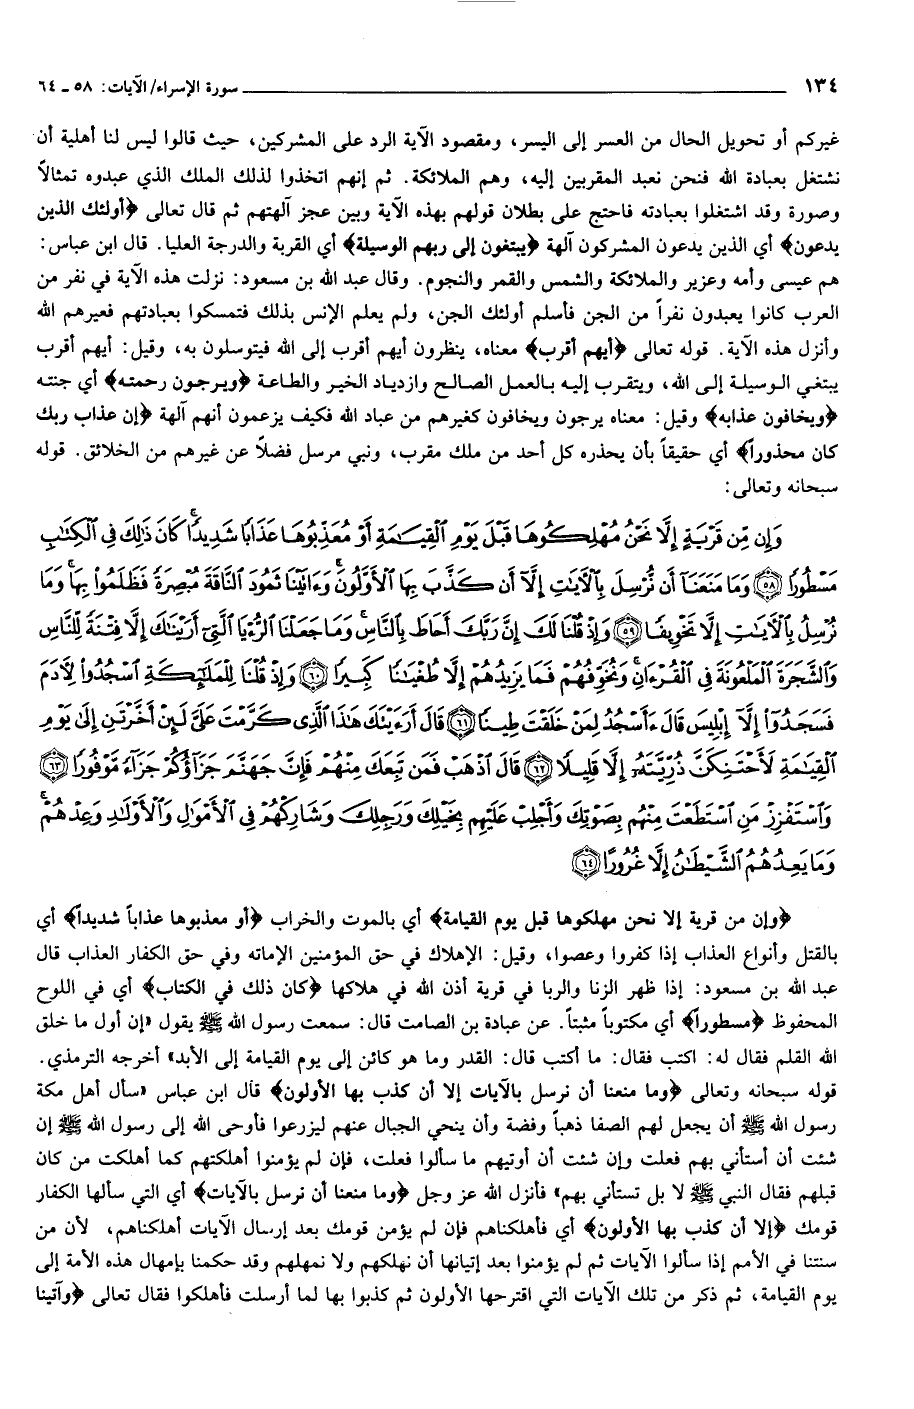 ١٣٤ سورة الإسراء/ الآيات: ٥٨ ـ ٦٤
غيركم أو تحويل الحال من العسر إلى اليسر، ومقصود الآية الرد على المشركين، حيث قالوا ليس لنا أهلية أن
نشتغل بعبادة الله فنحن نعبد المقربين إليه، وهم الملائكة. ثم إنهم اتخذوا لذلك الملك الذي عبدوه تمثالاً
وصورة وقد اشتغلوا بعبادته فاحتج على بطلان قولهم بهذه الآية وبين عجز آلهتهم ثم قال تعالى ﴿أولئك الذين
يدعون﴾ أي الذين يدعون المشركون آلهة ﴿يبتغون إلى ربهم الوسيلة﴾ أي القربة والدرجة العليا. قال ابن عباس:
هم عيسى وأمه وعزير والملائكة والشمس والقمر والنجوم. وقال عبد الله بن مسعود: نزلت هذه الآية في نفر من
العرب كانوا يعبدون نفراً من الجن فأسلم أولئك الجن، ولم يعلم الإنس بذلك فتمسكوا بعبادتهم فعيرهم الله
وأنزل هذه الآية. قوله تعالى ﴿أيهم أقرب﴾ معناه، ينظرون أيهم أقرب إلى الله فيتوسلون به، وقيل: أيهم أقرب
يبتغي الوسيلة إلى الله، ويتقرب إليه بالعمل الصالح وازدياد الخير والطاعة ﴿ويرجون رحمته﴾ أي جنته
﴿ويخافون عذابه﴾ وقيل: معناه يرجون ويخافون كغيرهم من عباد الله فكيف يزعمون أنهم آلهة ﴿إن عذاب ربك
كان محذوراً﴾ أي حقيقاً بأن يحذره كل أحد من ملك مقرب، ونبي مرسل فضلاً عن غيرهم من الخلائق. قوله
سبحانه وتعالى:
وَإِن مِّن قَرْيَةٍ إِلَّا نَحْنُ مُهْلِكُوهَا قَبْلَ يَوْمِ ٱلْقِيَـٰمَةِ أَوْ مُعَذِّبُوهَا عَذَابًا شَدِيدًاۚ كَانَ ذَٰلِكَ فِى ٱلْكِتَـٰبِ
مَسْطُورًا ﴿٥٨﴾ وَمَا مَنَعَنَآ أَن نُّرْسِلَ بِٱلْأَيَـٰتِ إِلَّآ أَن كَذَّبَ بِهَا ٱلْأَوَّلُونَۚ وَءَاتَيْنَا ثَمُودَ ٱلنَّاقَةَ مُبْصِرَةً فَظَلَمُوا۟ بِهَاۚ وَمَا
نُرْسِلُ بِٱلْأَيَـٰتِ إِلَّا تَخْوِيفًا ﴿٥٩﴾ وَإِذْ قُلْنَا لَكَ إِنَّ رَبَّكَ أَحَاطَ بِٱلنَّاسِۚ وَمَا جَعَلْنَا ٱلرُّءْيَا ٱلَّتِىٓ أَرَيْنَـٰكَ إِلَّا فِتْنَةً لِّلنَّاسِ
وَٱلشَّجَرَةَ ٱلْمَلْعُونَةَ فِى ٱلْقُرْءَانِۚ وَنُخَوِّفُهُمْ فَمَا يَزِيدُهُمْ إِلَّا طُغْيَـٰنًا كَبِيرًا ﴿٦٠﴾ وَإِذْ قُلْنَا لِلْمَلَـٰٓئِكَةِ ٱسْجُدُوا۟ لِأَدَمَ
فَسَجَدُوٓا۟ إِلَّآ إِبْلِيسَ قَالَ ءَأَسْجُدُ لِمَنْ خَلَقْتَ طِينًا ﴿٦١﴾ قَالَ أَرَءَيْتَكَ هَـٰذَا ٱلَّذِى كَرَّمْتَ عَلَىَّ لَئِنْ أَخَّرْتَنِ إِلَىٰ يَوْمِ
ٱلْقِيَـٰمَةِ لَأَحْتَنِكَنَّ ذُرِّيَّتَهُۥٓ إِلَّا قَلِيلًا ﴿٦٢﴾ قَالَ ٱذْهَبْ فَمَن تَبِعَكَ مِنْهُمْ فَإِنَّ جَهَنَّمَ جَزَآؤُكُمْ جَزَآءً مَّوْفُورًا ﴿٦٣﴾
وَٱسْتَفْزِزْ مَنِ ٱسْتَطَعْتَ مِنْهُم بِصَوْتِكَ وَأَجْلِبْ عَلَيْهِم بِخَيْلِكَ وَرَجِلِكَ وَشَارِكْهُمْ فِى ٱلْأَمْوَٰلِ وَٱلْأَوْلَـٰدِ وَعِدْهُمْۚ
وَمَا يَعِدُهُمُ ٱلشَّيْطَـٰنُ إِلَّا غُرُورًا ﴿٦٤﴾
﴿وإن من قرية إلا نحن مهلكوها قبل يوم القيامة﴾ أي بالموت والخراب ﴿أو معذبوها عذاباً شديداً﴾ أي
بالقتل وأنواع العذاب إذا كفروا وعصوا، وقيل: الإهلاك في حق المؤمنين الإماته وفي حق الكفار العذاب قال
عبد الله بن مسعود: إذا ظهر الزنا والربا في قرية أذن الله في هلاكها ﴿كان ذلك في الكتاب﴾ أي في اللوح
المحفوظ ﴿مسطوراً﴾ أي مكتوباً مثبتاً. عن عبادة بن الصامت قال: سمعت رسول الله ﷺ يقول «إن أول ما خلق
الله القلم فقال له: اكتب فقال: ما أكتب قال: القدر وما هو كائن إلى يوم القيامة إلى الأبد» أخرجه الترمذي.
قوله سبحانه وتعالى ﴿وما منعنا أن نرسل بالآيات إلا أن كذب بها الأولون﴾ قال ابن عباس «سأل أهل مكة
رسول الله ﷺ أن يجعل لهم الصفا ذهباً وفضة وأن ينحي الجبال عنهم ليزرعوا فأوحى الله إلى رسول الله ﷺ إن
شئت أن أستأني بهم فعلت وإن شئت أن أوتيهم ما سألوا فعلت، فإن لم يؤمنوا أهلكتهم كما أهلكت من كان
قبلهم فقال النبي ﷺ لا بل تستأني بهم» فأنزل الله عز وجل ﴿وما منعنا أن نرسل بالآيات﴾ أي التي سألها الكفار
قومك ﴿إلا أن كذب بها الأولون﴾ أي فأهلكناهم فإن لم يؤمن قومك بعد إرسال الآيات أهلكناهم، لأن من
سنتنا في الأمم إذا سألوا الآيات ثم لم يؤمنوا بعد إتيانها أن نهلكهم ولا نمهلهم وقد حكمنا بإمهال هذه الأمة إلى
يوم القيامة، ثم ذكر من تلك الآيات التي اقترحها الأولون ثم كذبوا بها لما أرسلت فأهلكوا فقال تعالى ﴿وآتينا